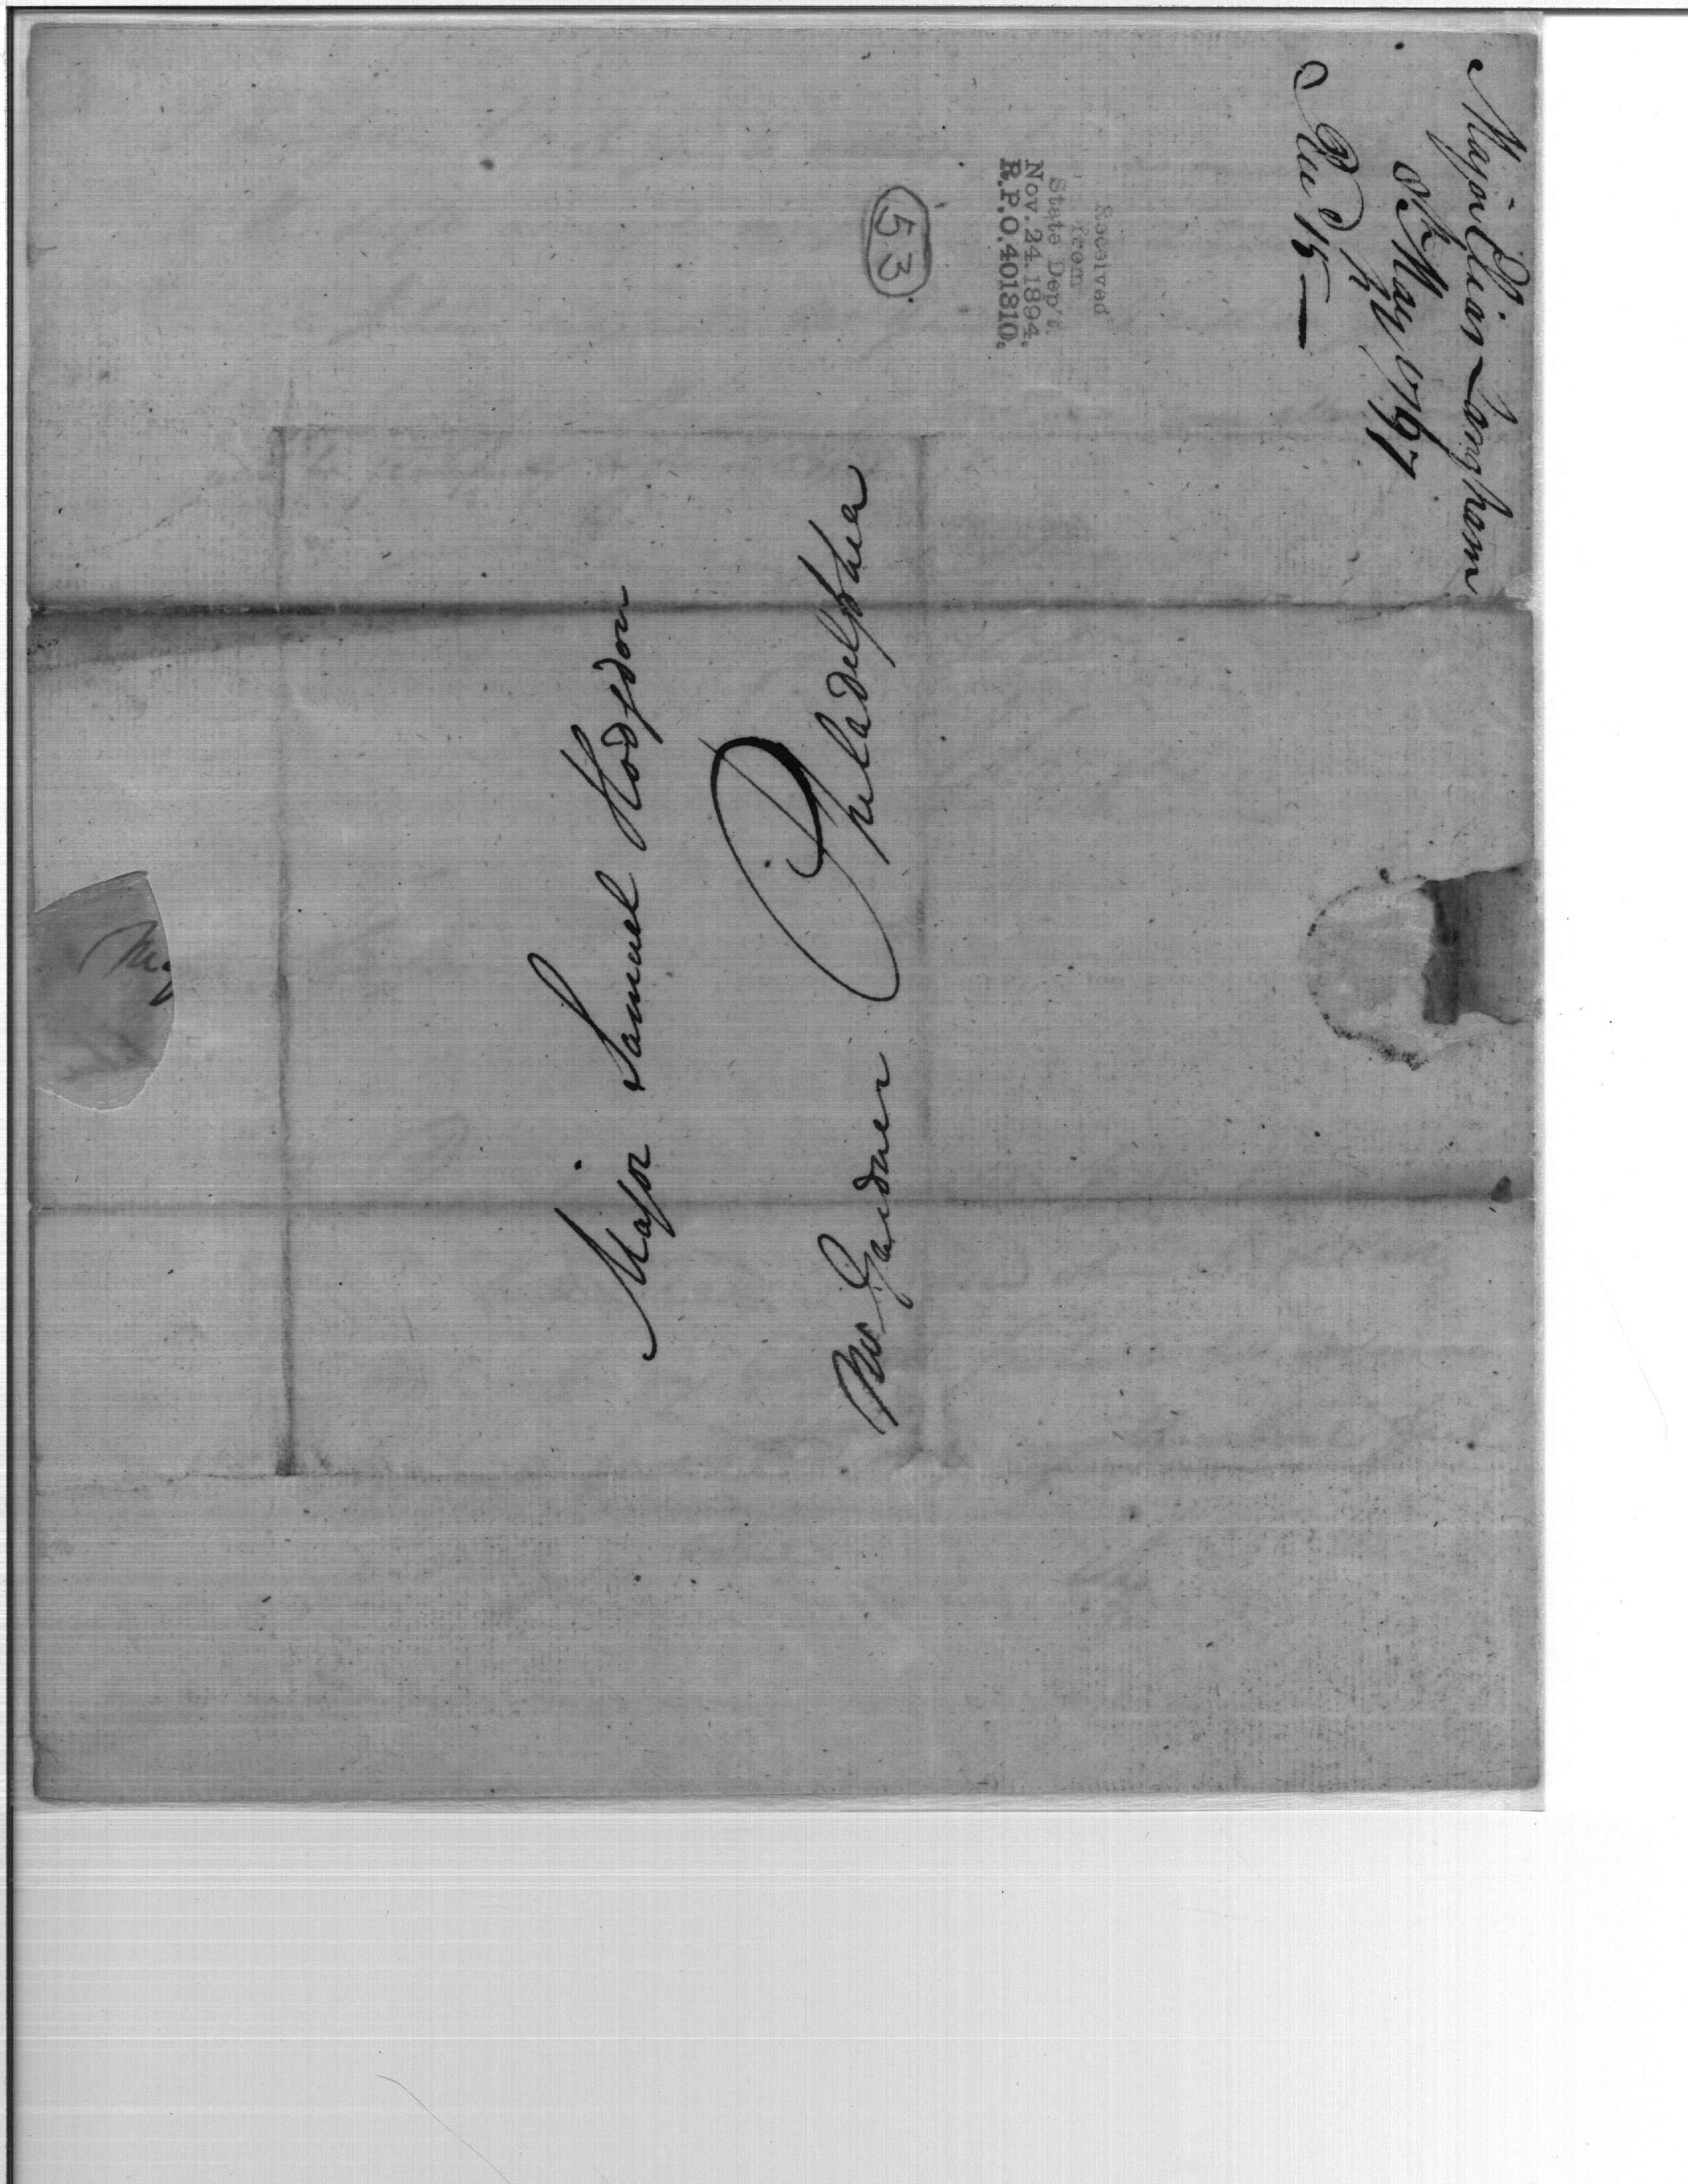 Major Elias Langham
8th May 1797
Recd 15 —
Received
from
State Dep't.
Nov. 24. 1894.
R.P.O. 401310.
53
Major Samuel Hodgdon
Philadelphia
Mr Gardner